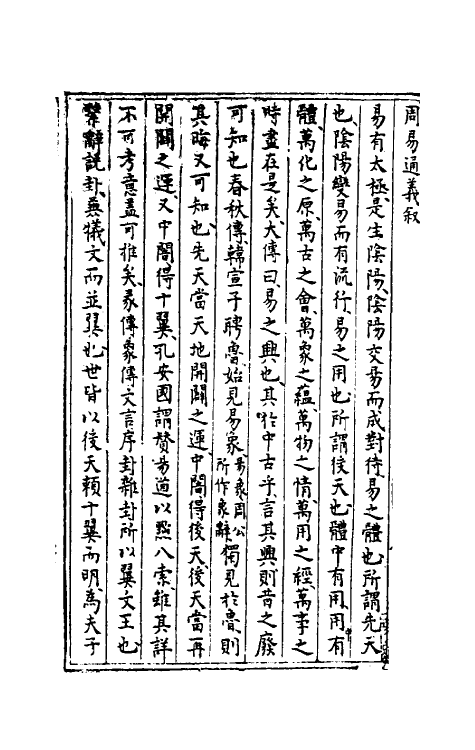 周易通義叙
易有太極是生陰陽陰陽交易而成對待易之體也所謂先天
也陰陽變易而有流行易之用也所謂後天也體中有用用有
體萬化之原萬古之會萬象之蘊萬物之情萬用之經萬事之
時盡在是矣大傳曰易之興也其於中古乎言其興則昔之廢
可知也春秋傳韓宣子聘魯始見易象易象周公所作象辭獨見於魯則
其晦又可知也先天當天地開闢之運中閣得後天後天當再
開闢之運又中閣得十翼孔安國謂賛易道以黜八索雖其詳
不可考意盖可推矣彖傳象傳文言序卦雜卦所以翼文王也
繫辭説卦兼犧文而並翼也世皆以後天賴十翼而明為夫子